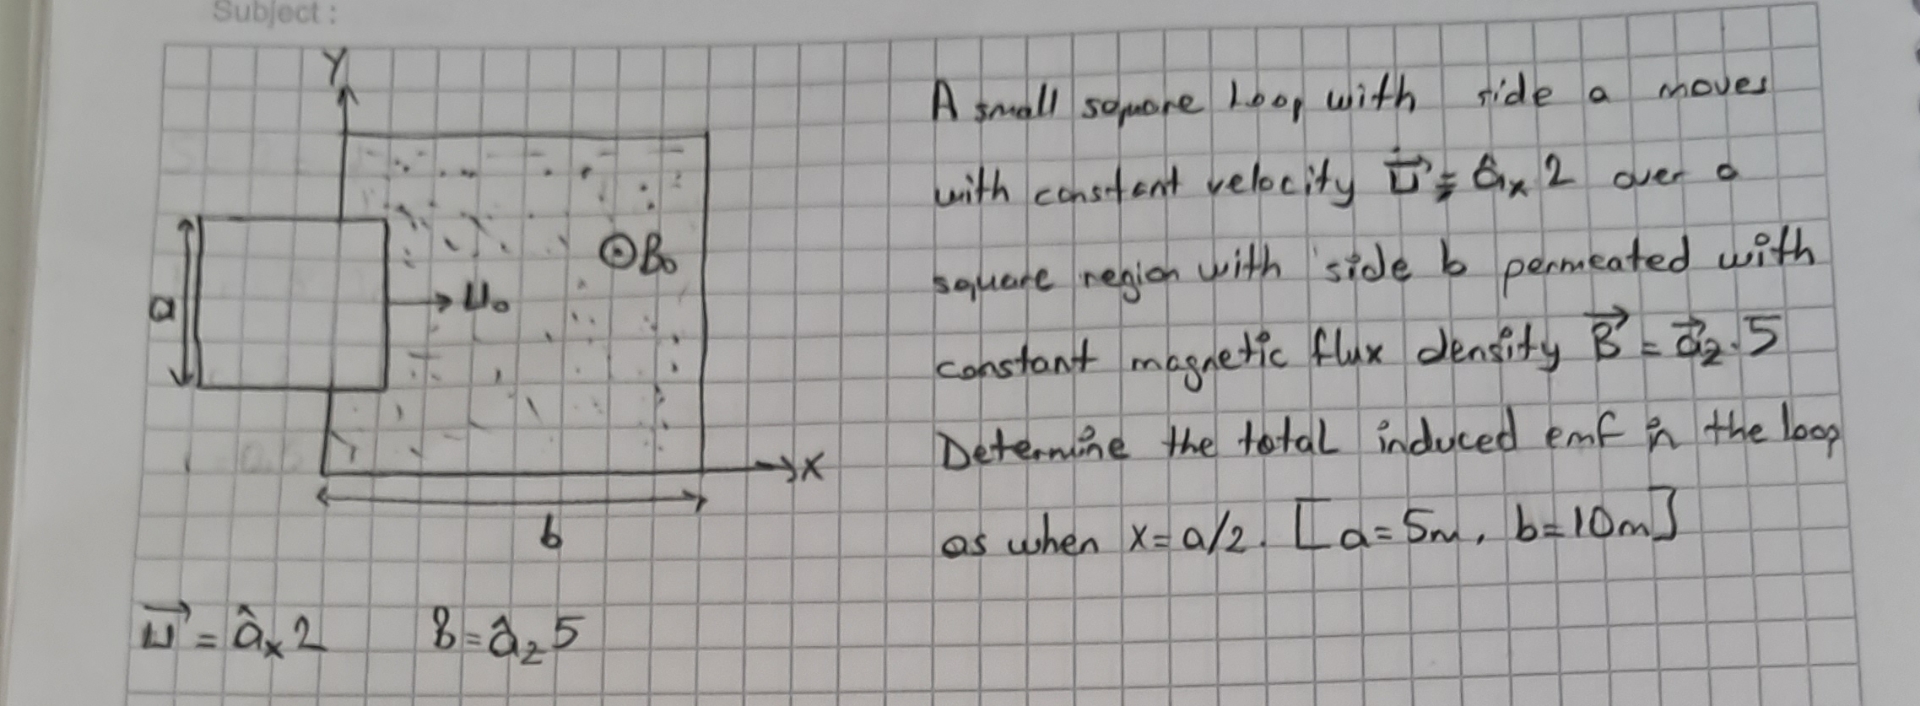 Subject :
Y
A small square loop with side a moves
with constant velocity U⃗ = âₓ 2 over a
⊙B₀
square region with side b permeated with
a
U₀
constant magnetic flux density B⃗ = a⃗z.5
X
Determine the total induced emf in the loop
b
as when x = a/2. [a=5m, b=10m]
U⃗ = âₓ 2 B = âz 5